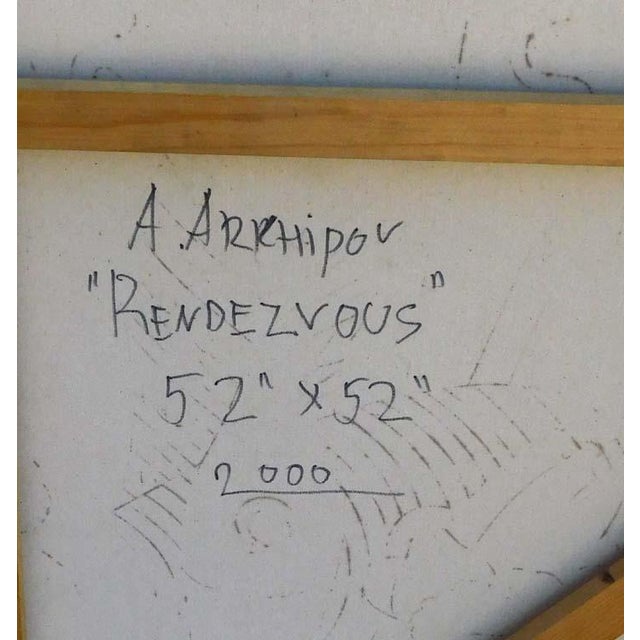 A. ARKHIPOV
"RENDEZVOUS"
52" x 52"
2000